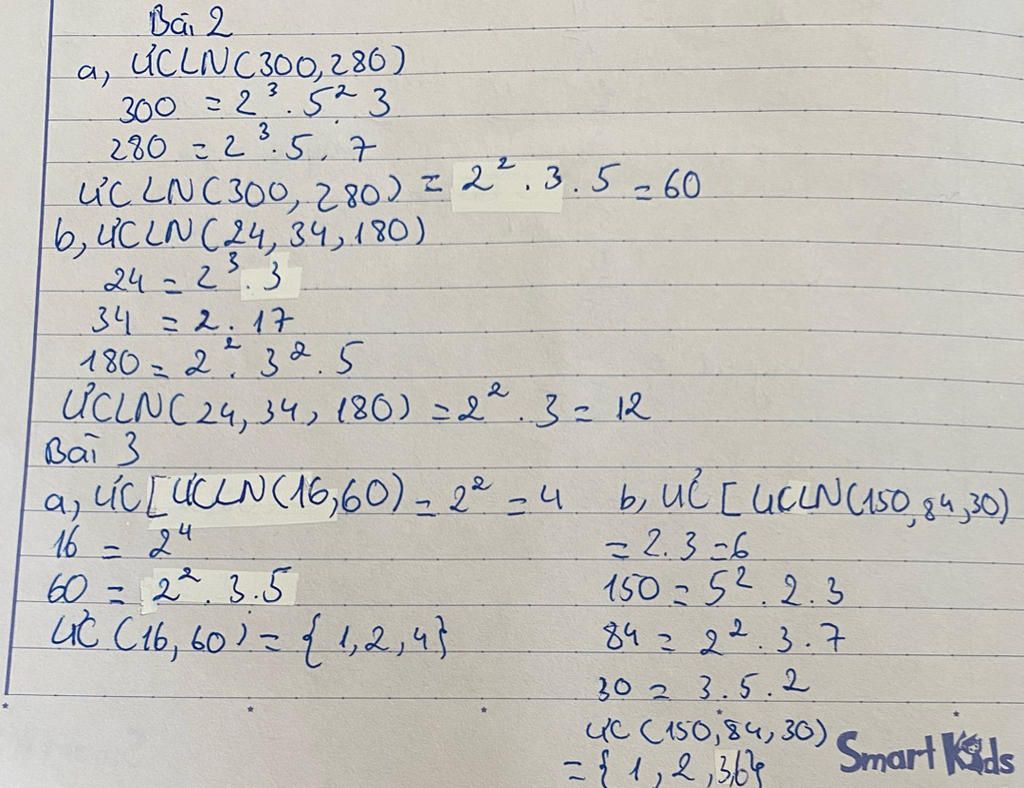 Bài 2
a, ƯCLN(300,280)
300 = 2³ . 5² 3
280 = 2³ . 5 . 7
ƯCLN(300, 280) = 2² . 3 . 5 = 60
b, ƯCLN(24, 34, 180)
24 = 2³ . 3
34 = 2 . 17
180 = 2² . 3² . 5
ƯCLN(24, 34, 180) = 2² . 3 = 12
Bài 3
a, ƯC [ƯCLN(16,60) = 2² = 4
16 = 2⁴
60 = 2² . 3 . 5
ƯC (16, 60) = { 1, 2, 4}
b, ƯC [ƯCLN(150, 84, 30)
= 2.3 = 6
150 = 5² . 2 . 3
84 = 2² . 3 . 7
30 = 3 . 5 . 2
ƯC (150, 84, 30)
= { 1, 2, 3,6}
Smart Kids